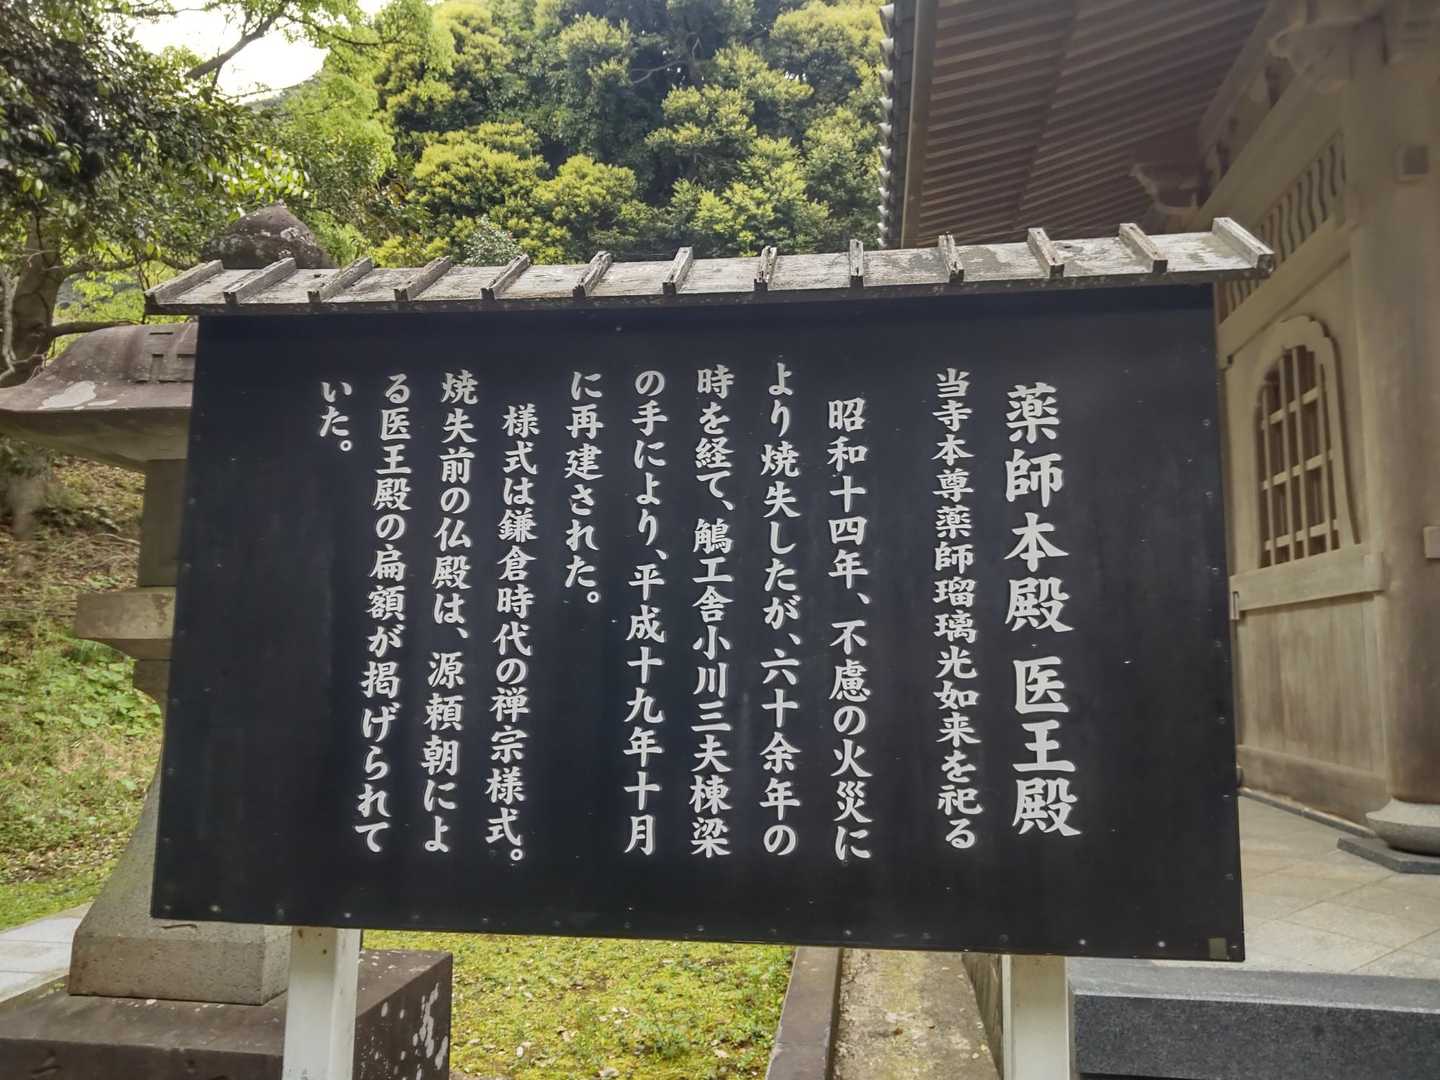 薬師本殿 医王殿
当寺本尊薬師瑠璃光如来を祀る
昭和十四年、不慮の火災に
より焼失したが、六十余年の
時を経て、鵤工舎小川三夫棟梁
の手により、平成十九年十月
に再建された。
様式は鎌倉時代の禅宗様式。
焼失前の仏殿は、源頼朝によ
る医王殿の扁額が掲げられて
いた。